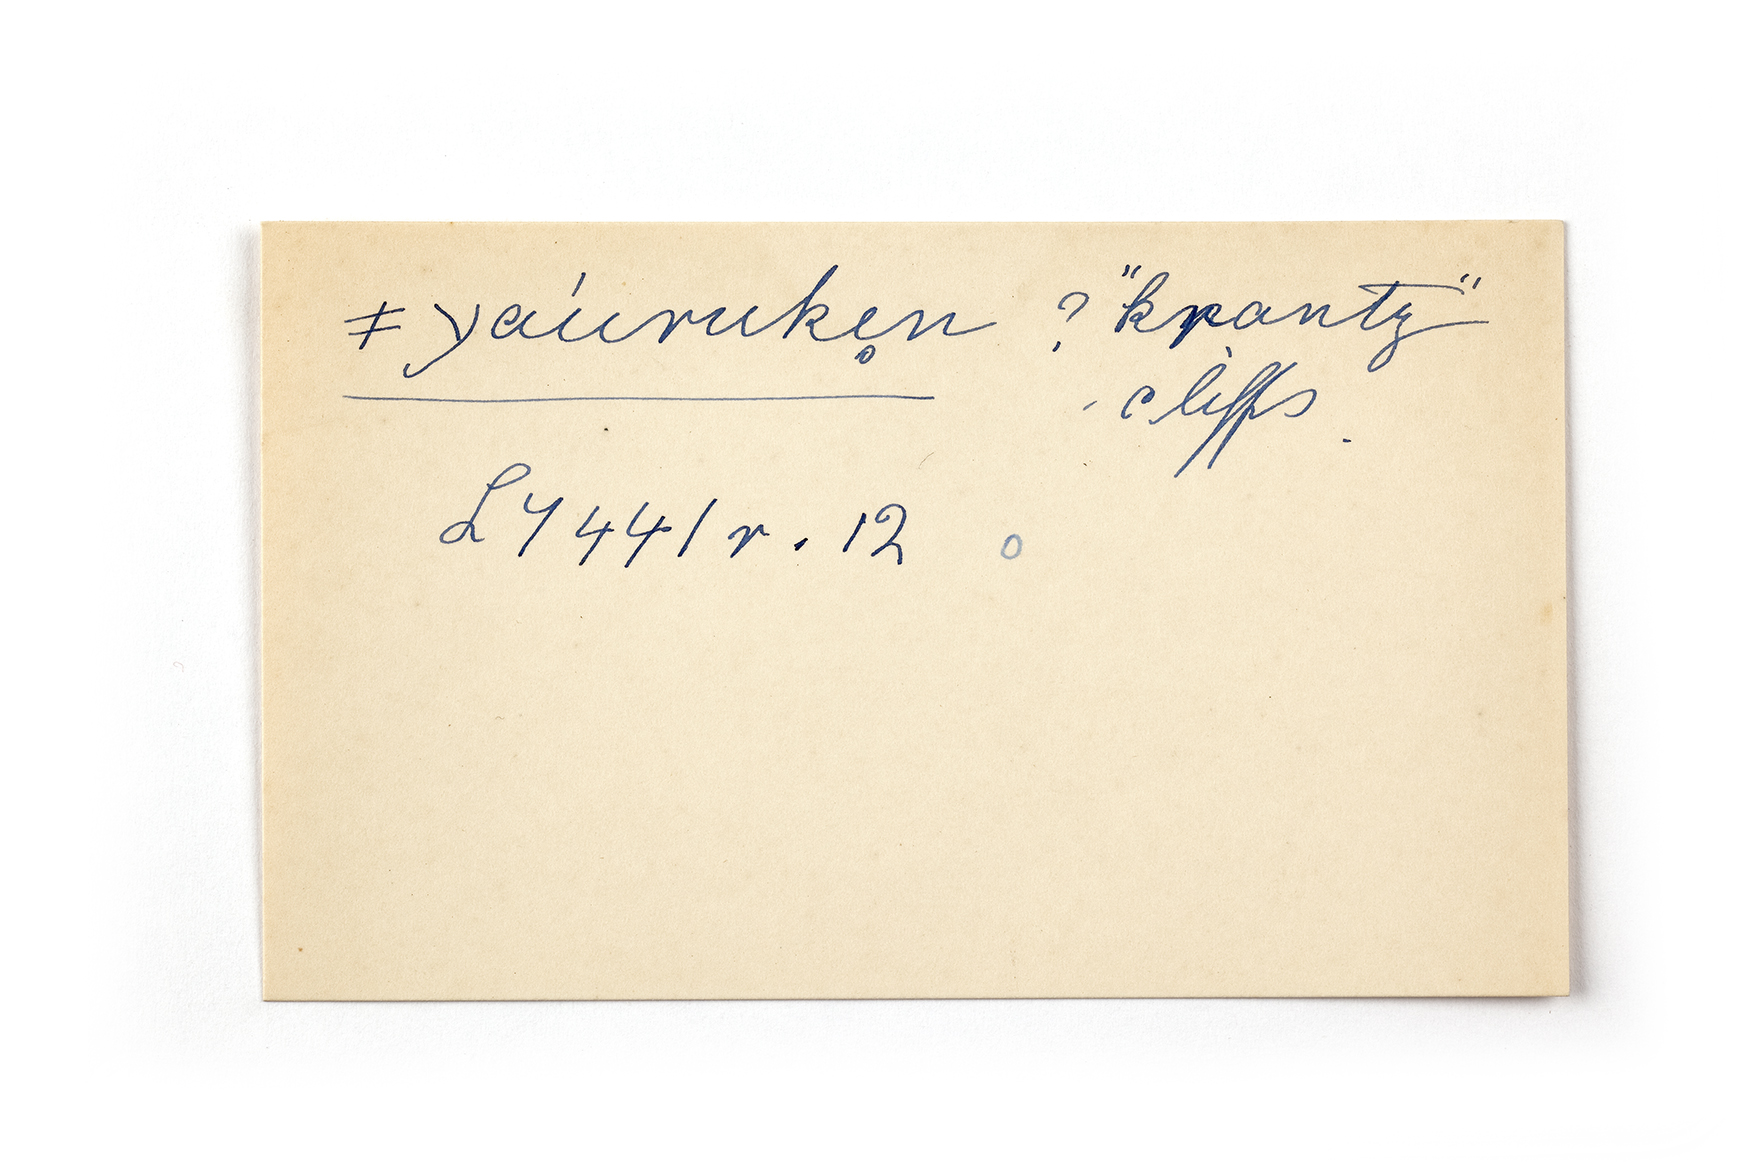 ǂ yáuruke̥n ? "krantz"
cliffs.
LY 441 r. 12 o